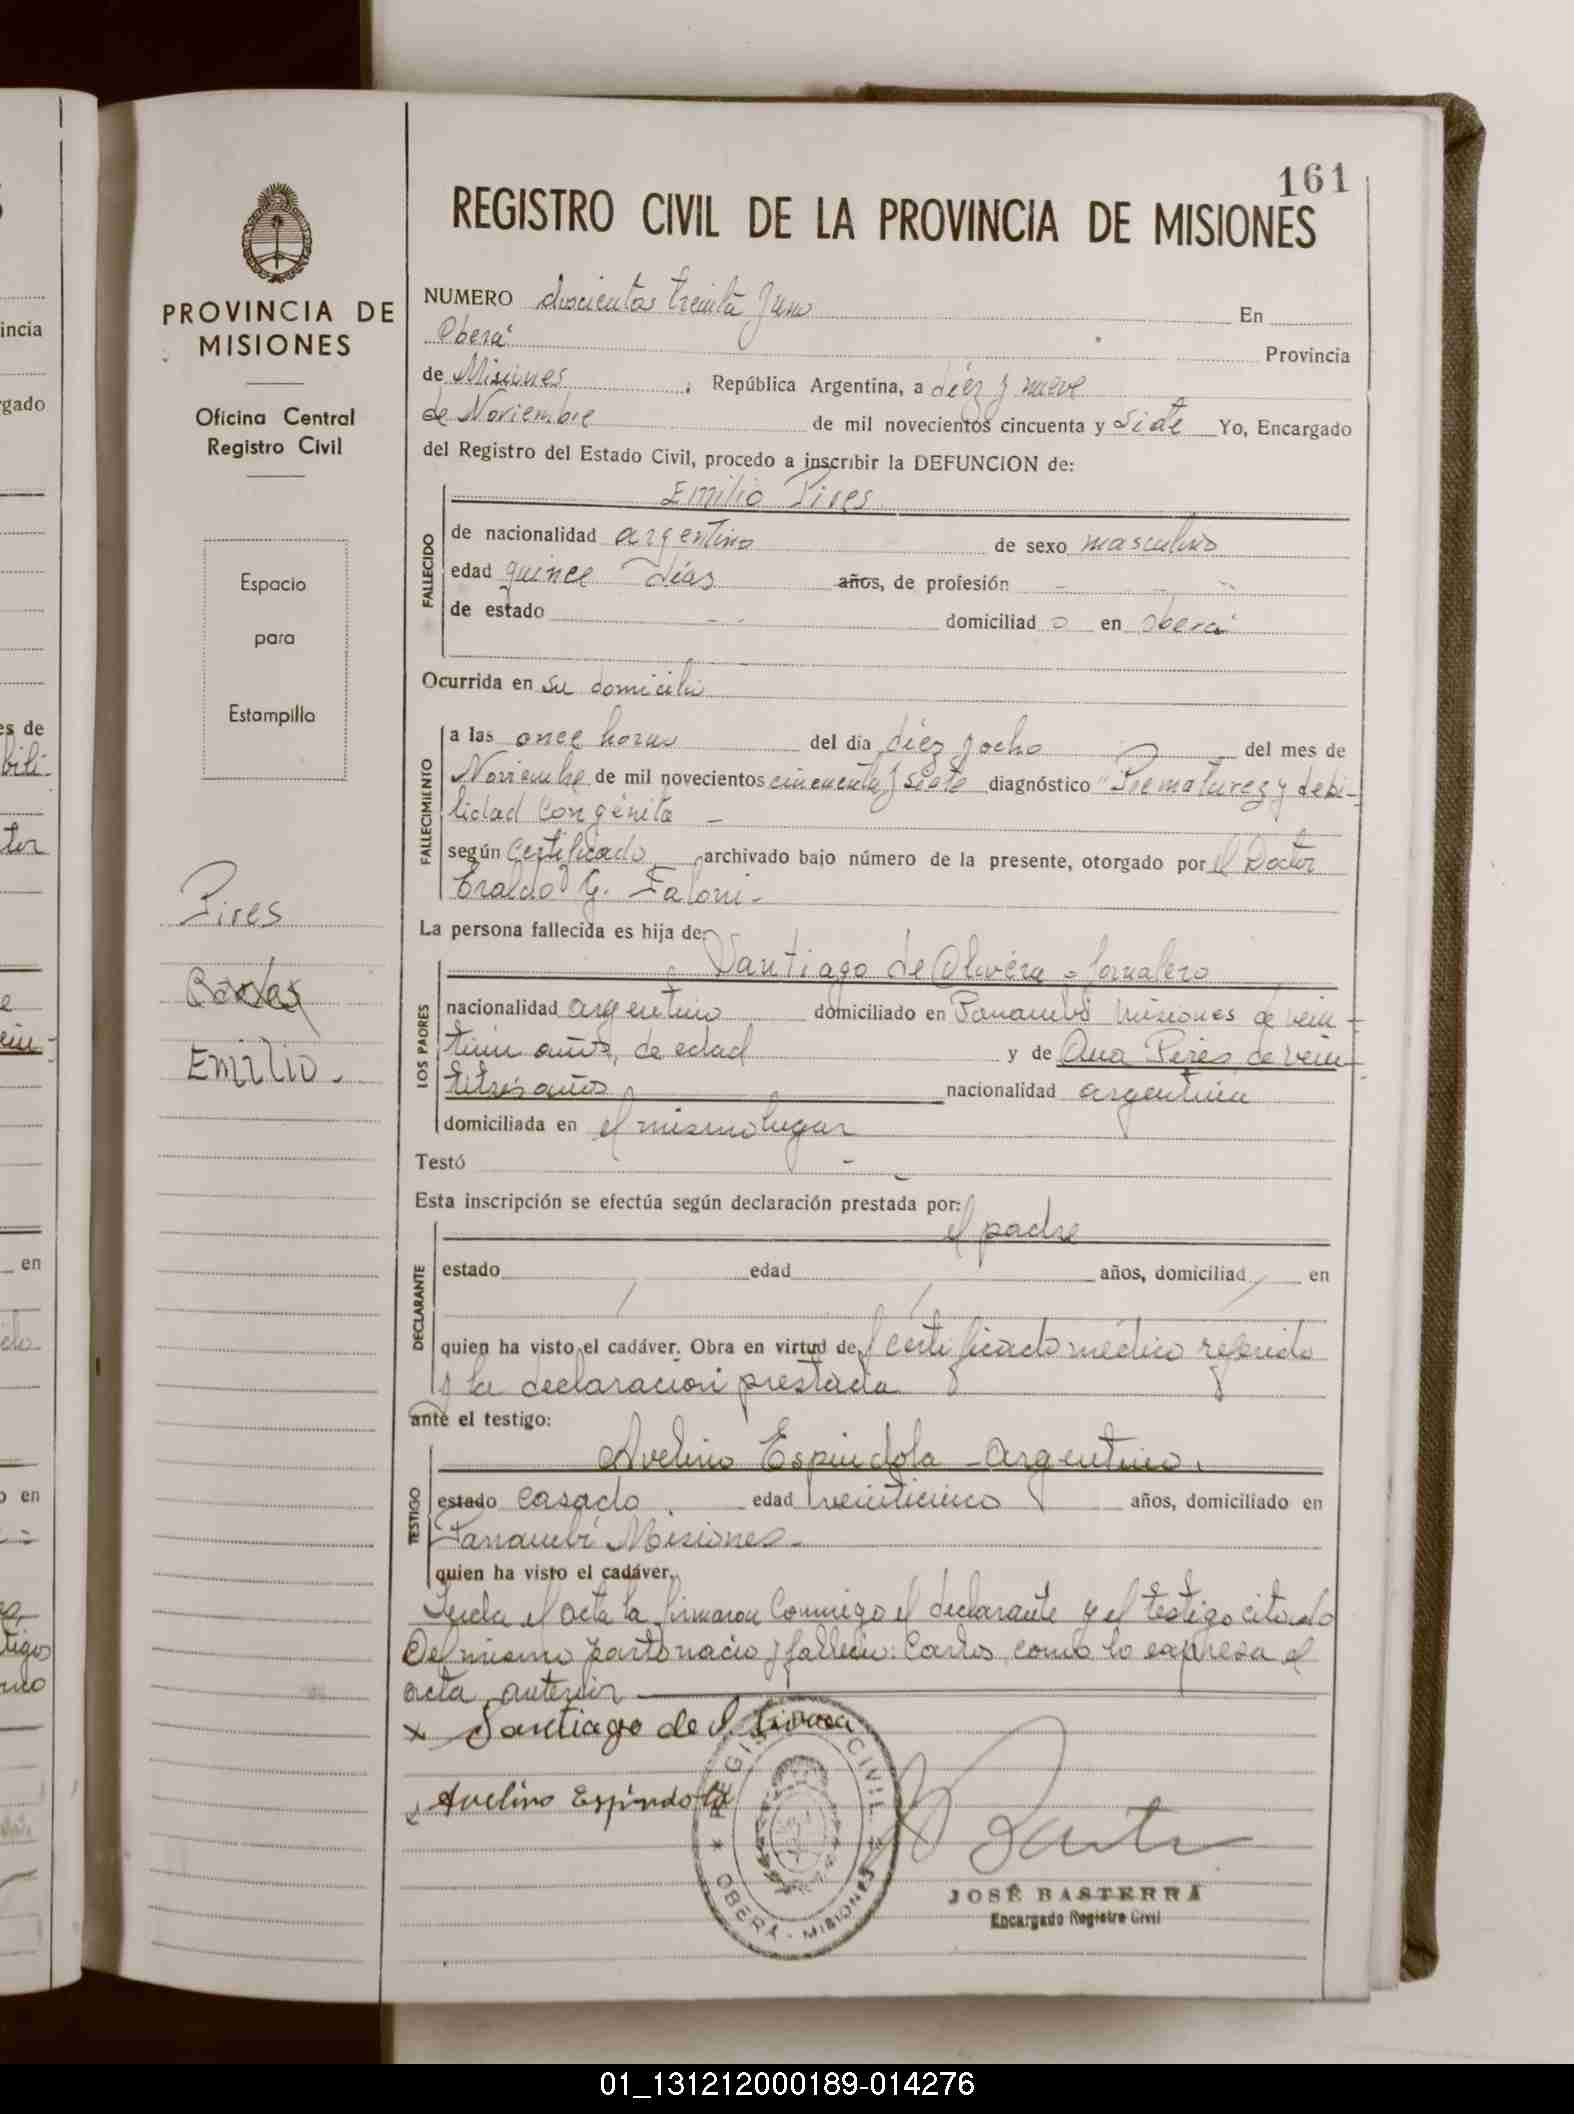 161
REGISTRO CIVIL DE LA PROVINCIA DE MISIONES
PROVINCIA DE
MISIONES
Oficina Central
Registro Civil
Espacio
para
Estampilla
Pires
Carlos
Emilio.-
NUMERO doscientos treinta y uno En
Oberá Provincia
de Misiones, República Argentina, a diez y nueve
de Noviembre de mil novecientos cincuenta y siete Yo, Encargado
del Registro del Estado Civil, procedo a inscribir la DEFUNCION de:
Emilio Pires
FALLECIDO
de nacionalidad argentino de sexo masculino
edad quince días años, de profesión -
de estado - domiciliad o en Oberá
Ocurrida en su domicilio
FALLECIMIENTO
a las once horas del día diez y ocho del mes de
Noviembre de mil novecientos cincuenta y siete diagnóstico "Prematurez y debi-
lidad congénita -
según certificado archivado bajo número de la presente, otorgado por el Doctor
Eraldo G. Faloni.-
La persona fallecida es hija de:
Santiago de Olivera - Jornalero
LOS PADRES
nacionalidad argentino domiciliado en Panambí Misiones de vein-
tiún años, de edad y de Ana Pires, de vein-
titrés años nacionalidad argentina
domiciliada en el mismo lugar
Testó -
Esta inscripción se efectúa según declaración prestada por:
el padre
DECLARANTE
estado edad años, domiciliad en
quien ha visto el cadáver. Obra en virtud del certificado médico referido
y la declaración prestada
ante el testigo:
Avelino Espindola - argentino.
TESTIGO
estado casado edad veinticinco años, domiciliado en
Panambí Misiones.-
quien ha visto el cadáver.
Leída el acta la firmaron conmigo el declarante y el testigo citado
Del mismo parto nació y falleció: Carlos, como lo expresa el
acta anterior
x Santiago de
Avelino Espindola
REGISTRO CIVIL
OBERÁ - MISIONES
JOSÉ BASTERRA
Encargado Registro Civil
incia
rgado
es de
bili-
tor
en
o en
01_131212000189-014276